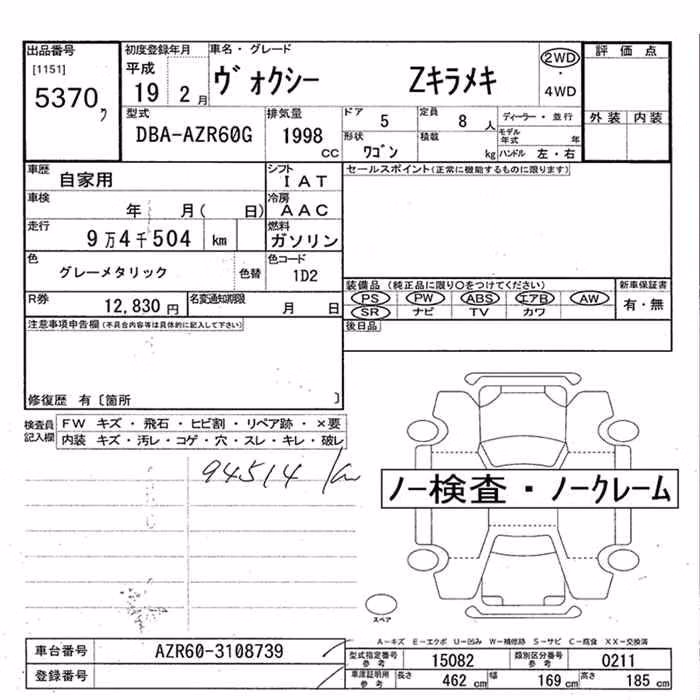 出品番号 初度登録年月 車名・グレード 評価点
[1151] 平成 ヴォクシー Zキラメキ 2WD
5370 ワ 19 2月 ・ 4WD
型式 排気量 ドア 5 定員 8人 ディーラー・並行 外装 内装
DBA-AZR60G 1998 CC 形状 ワゴン 積載 kg モデル年式 年 ハンドル 左・右
車歴 自家用 シフト IAT セールスポイント(正常に機能するものに限ります)
車検 年 月( 日) 冷房 AAC
走行 9万4千504 km 燃料 ガソリン
色 グレーメタリック 色替 色コード 1D2
装備品(純正品に限り○をつけてください) 新車保証書
R券 12,830円 名変通知期限 月 日 PS PW ABS エアB AW 有・無
SR ナビ TV カワ
注意事項申告欄(不具合内容等は具体的に記入して下さい) 後日品
修復歴 有〔箇所 〕
検査員記入欄 FW キズ・飛石・ヒビ割・リペア跡・×要
内装 キズ・汚レ・コゲ・穴・スレ・キレ・破レ
94514 km
ノー検査・ノークレーム
スペア
A-キズ E-エクボ U-凹み W-補修跡 S-サビ C-腐食 XX-交換済
車台番号 AZR60-3108739 型式指定番号 参考 15082 類別区分番号 参考 0211
登録番号 車庫証明用 参考 長さ 462 cm 幅 169 cm 高さ 185 cm